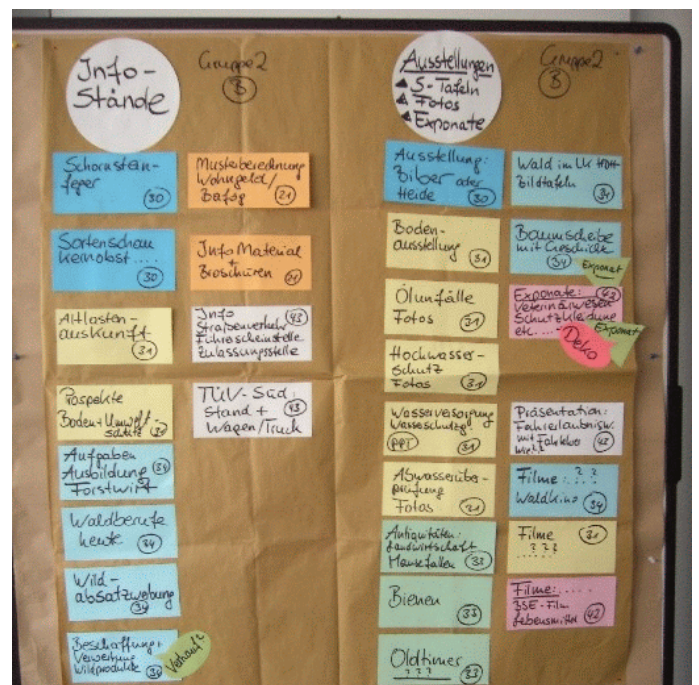 Info-
Stände
Gruppe 2
B
Schornstein-
feger
30
Sortenschau
Kernobst ....
30
Altlasten-
auskunft
31
Prospekte
Boden + Umwelt-
schutz 31
Aufgaben
Ausbildung 34
Forstwirt
Waldberufe
heute
34
Wild-
absatzwerbung
34
Beschaffung +
Verwertung
Wildprodukte 34
Verkauf?
Musterberechnung
Wohngeld/
Bafög
21
Info Material
+
Broschüren 21
Info 43
Straßenverkehr
Führerscheinstelle
Zulassungsstelle
TÜV-Süd
Stand + 43
Wagen/Truck
Ausstellungen
S-Tafeln
Fotos
Exponate
Gruppe 2
B
Ausstellung:
Biber oder
Heide 30
Boden-
ausstellung
31
Ölunfälle
Fotos
31
Hochwasser-
schutz
Fotos 31
Wasserversorgung
Wasserschutzg
PPT 31
Abwasserüber-
prüfung
Fotos 31
Antiquitäten:
Landwirtschaft
Mausefallen 33
Bienen
33
Oldtimer
? ? ? 33
Wald im LK HDH
Bildtafeln
34
Baumscheibe
mit Geschichte
34
Exponat
Exponate: 42
Veterinärwesen
Schutzkleidung
etc. ....
Exponat
Deko
Präsentation:
Fahrerlaubnisw.
mit Fahrlbs
43
Filme: . ? . ?
Waldkino 34
Filme 31
. ? ? ? .
Filme: .....
BSE-Film
Lebensmittel 42